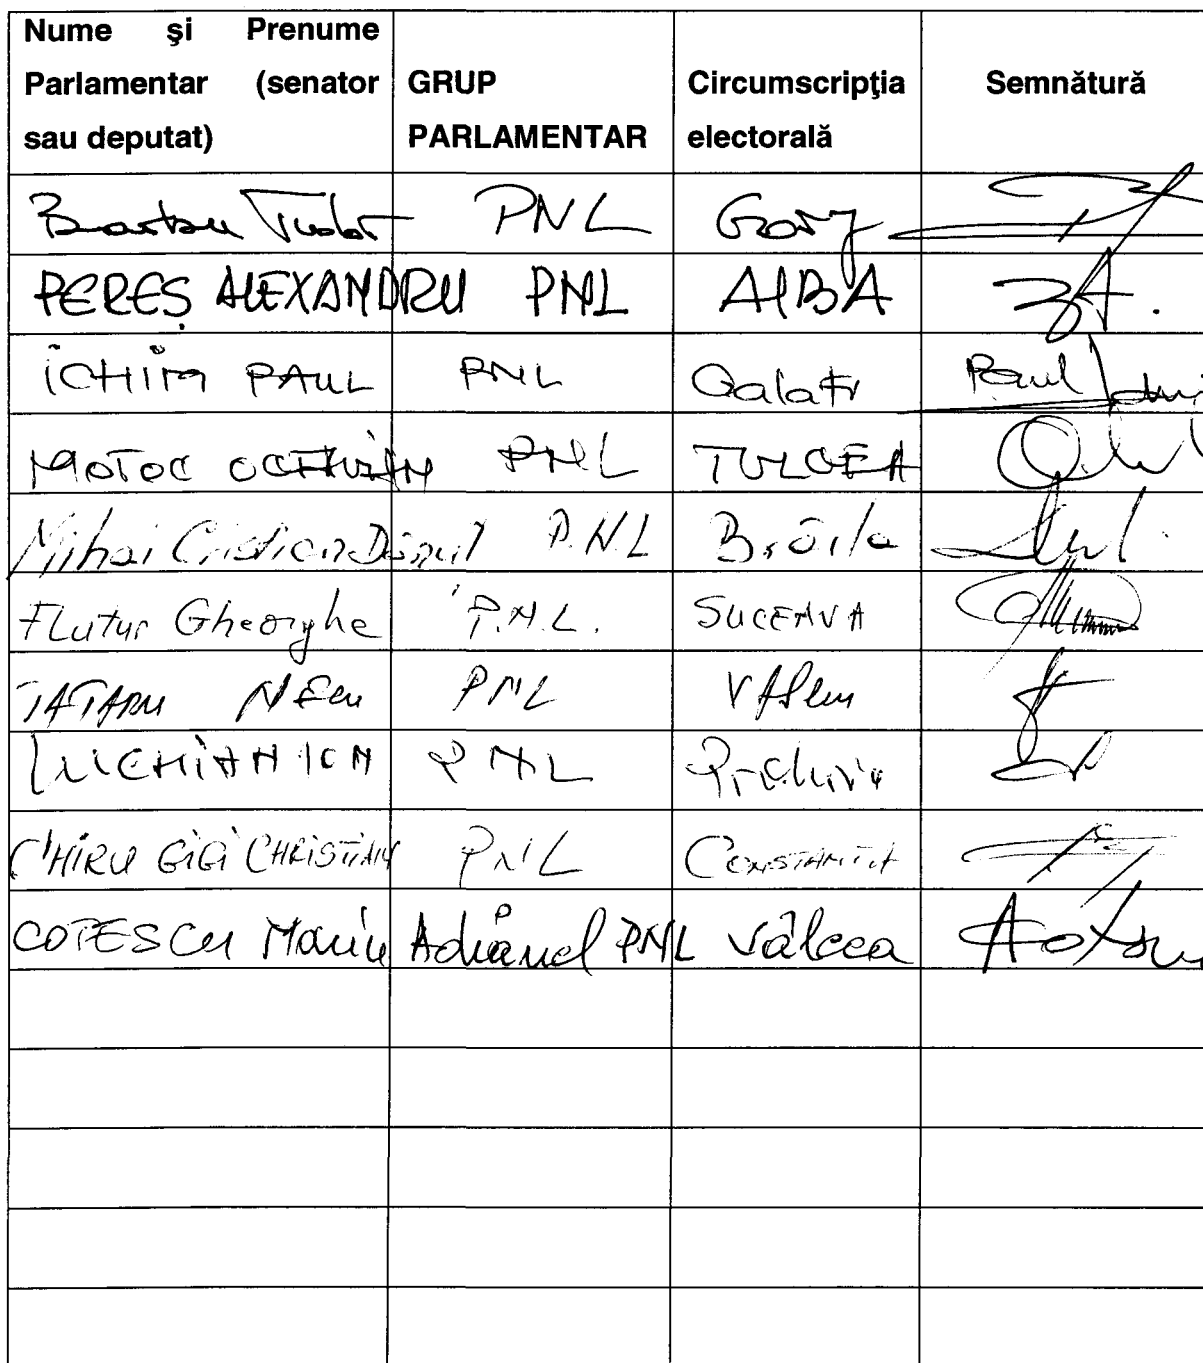 Nume și Prenume Parlamentar (senator sau deputat) GRUP PARLAMENTAR Circumscripția electorală Semnătură
Barbu Tudor PNL Gorj
PEREȘ ALEXANDRU PNL ALBA
ICHIM PAUL PNL Galați Paul
MOTOC OCTAVIAN PNL TULCEA
Mihai Cristian Dănuț P.N.L Brăila
Flutur Gheorghe P.N.L. SUCEAVA
TATARU NEl PNL
LUCHIAN ION PNL
CHIRU GIGI CHRISTIAN PNL CONSTANTA
COTESCU Marin Adrianel PNL Vâlcea